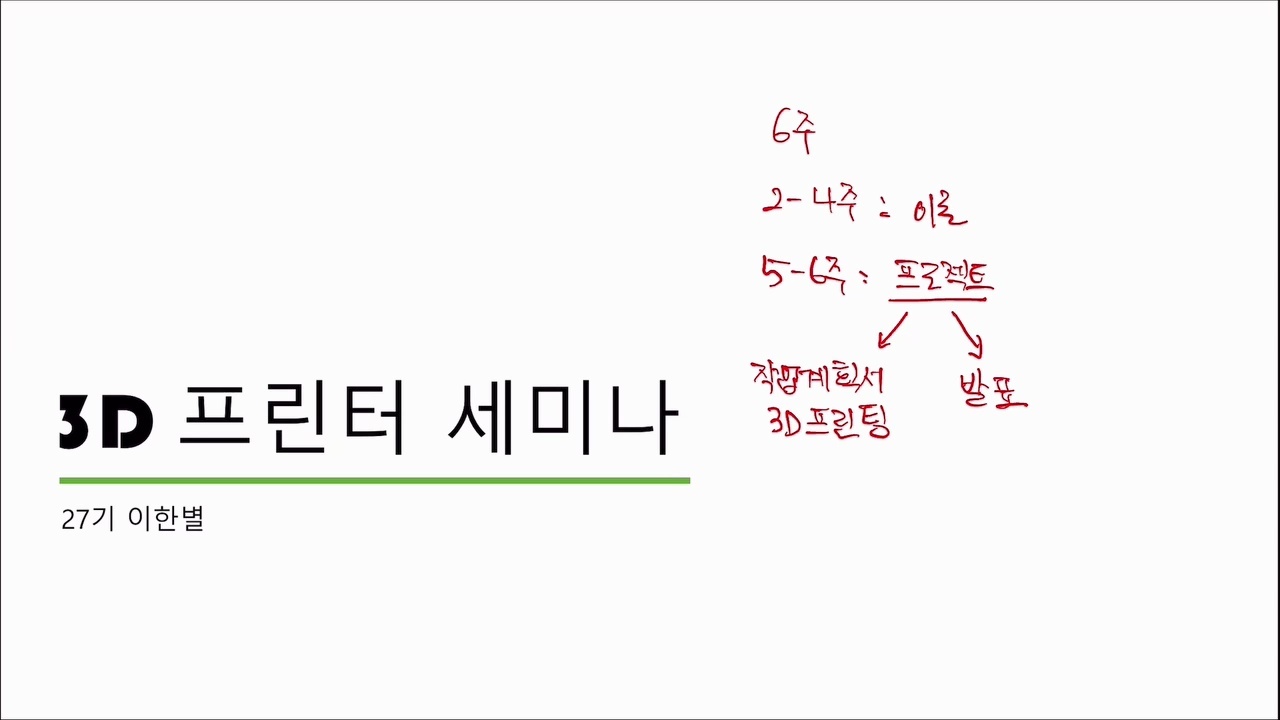 3D 프린터 세미나
27기 이한별
6주
2-4주 : 이론
5-6주 : 프로젝트
작업계획서
3D프린팅
발표